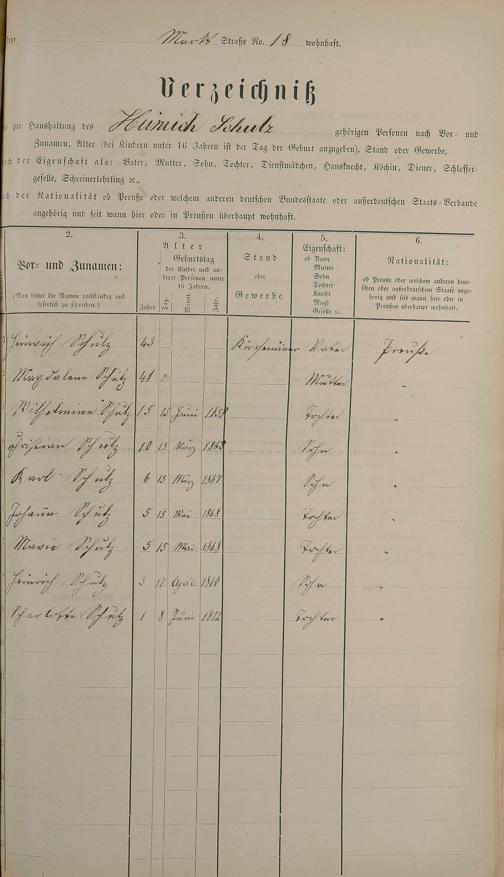 Markt Straße No. 18 wohnhaft.
Verzeichniß
zur Haushaltung des Heinrich Schulz gehörigen Personen nach Vor- und
Zunamen, Alter (bei Kindern unter 16 Jahren ist der Tag der Geburt anzugeben), Stand oder Gewerbe,
der Eigenschaft als: Vater, Mutter, Sohn, Tochter, Dienstmädchen, Hausknecht, Köchin, Diener, Schlosser-
geselle, Schreinerlehrling ꝛc.,
der Nationalität ob Preuße oder welchem anderen deutschen Bundesstaate oder außerdeutschen Staats-Verbande
angehörig und seit wann hier oder in Preußen überhaupt wohnhaft.
2. 3. 4. 5. 6.
Vor- und Zunamen:
(Man bittet die Namen vollständig und
leserlich zu schreiben.)
Alter
Geburtstag
der Kinder und an-
derer Personen unter
16 Jahren.
Jahre. Tag. Monat. Jahr.
Stand
oder
Gewerbe.
Eigenschaft:
ob Vater
Mutter
Sohn
Tochter
Knecht
Magd
Geselle ꝛc.
Nationalität:
ob Preuße oder welchem anderen deut-
schen oder außerdeutschen Staate ange-
hörig und seit wann hier oder in
Preußen überhaupt wohnhaft.
Heinrich Schulz 43 Kirchendiener Vater Preuße
Magdalene Schulz 41 Mutter "
Wilhelmine Schulz 15 15 Juni 1858 Tochter "
Christian Schulz 10 13 März 1863 Sohn "
Karl Schulz 6 13 März 1867 Sohn "
Johana Schulz 5 15 Mai 1868 Tochter "
Marie Schulz 5 15 Mai 1868 Tochter "
Heinrich Schulz 3 April 1870 Sohn "
Charlotte Schulz 1 8 Juni 1872 Tochter "